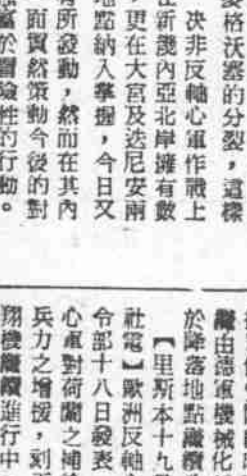 格沃塞的分裂，這樣
決非反軸心軍作戰上
在新畿內亞北岸擁有數
，更在大宮及迭尼安兩
地點納入掌握，今日又
有所發動，然而在其內
面貿然策動今後的對
富於冒險性的行動。
由德軍機械化
於降落地點繼續
【里斯本十九
社電】歐洲反軸
令部十八日發表
心軍對荷蘭之補
兵力之增援，刻
翔機繼續進行中